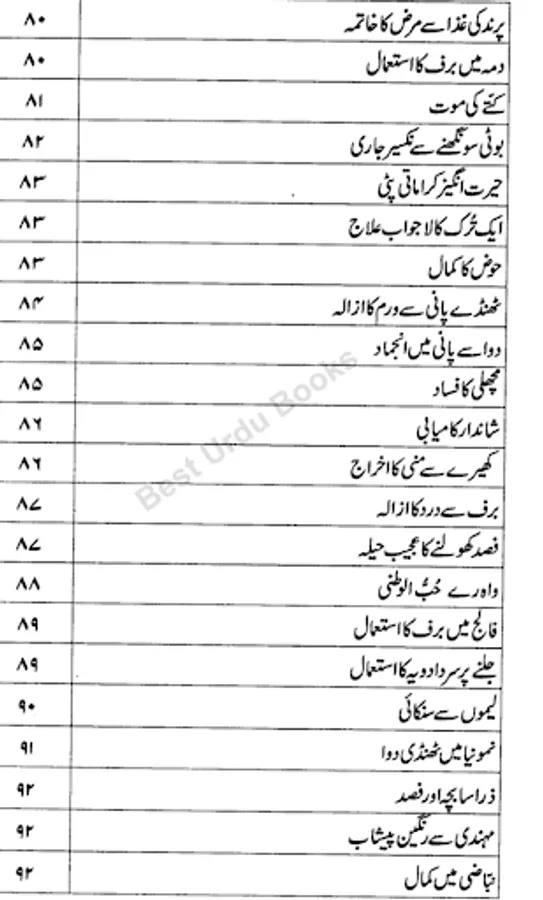 پرند کی غذا سے مرض کا خاتمہ ۸۰
دمہ میں برف کا استعمال ۸۰
کتّے کی موت ۸۱
بوٹی سونگھنے سے نکسیر جاری ۸۲
حیرت انگیز کراماتی پٹی ۸۳
ایک تُرک کا لاجواب علاج ۸۳
حوض کا کمال ۸۳
ٹھنڈے پانی سے ورم کا ازالہ ۸۴
دوا سے پانی میں انجماد ۸۵
مچھلی کا فساد ۸۵
شاندار کامیابی ۸۶
کھیرے سے منی کا اخراج ۸۶
برف سے درد کا ازالہ ۸۷
فصد کھولنے کا عجیب حیلہ ۸۷
واہ رے حُبُّ الوطنی ۸۸
فالج میں برف کا استعمال ۸۹
جلنے پر سرد ادویہ کا استعمال ۸۹
لیموں سے سنکائی ۹۰
نمونیا میں ٹھنڈی دوا ۹۱
ذرا سا بچہ اور فصد ۹۲
مہندی سے رنگین پیشاب ۹۲
نبّاضی میں کمال ۹۲
Best Urdu Books